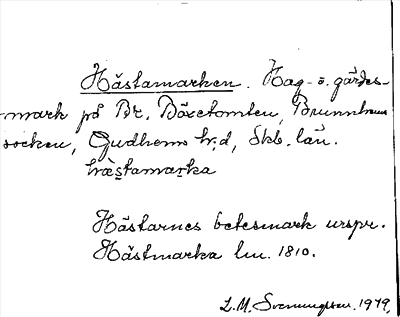 Hästamarken. Hag- o. gärdes-
-mark på Br. Bäxetomten, Brunnhems
socken, Gudhems h:d, Skb. län.
hæstamarka
Hästarnes betesmark urspr.
Hästmarka lm. 1810.
L.M. Svenungsson. 1979.